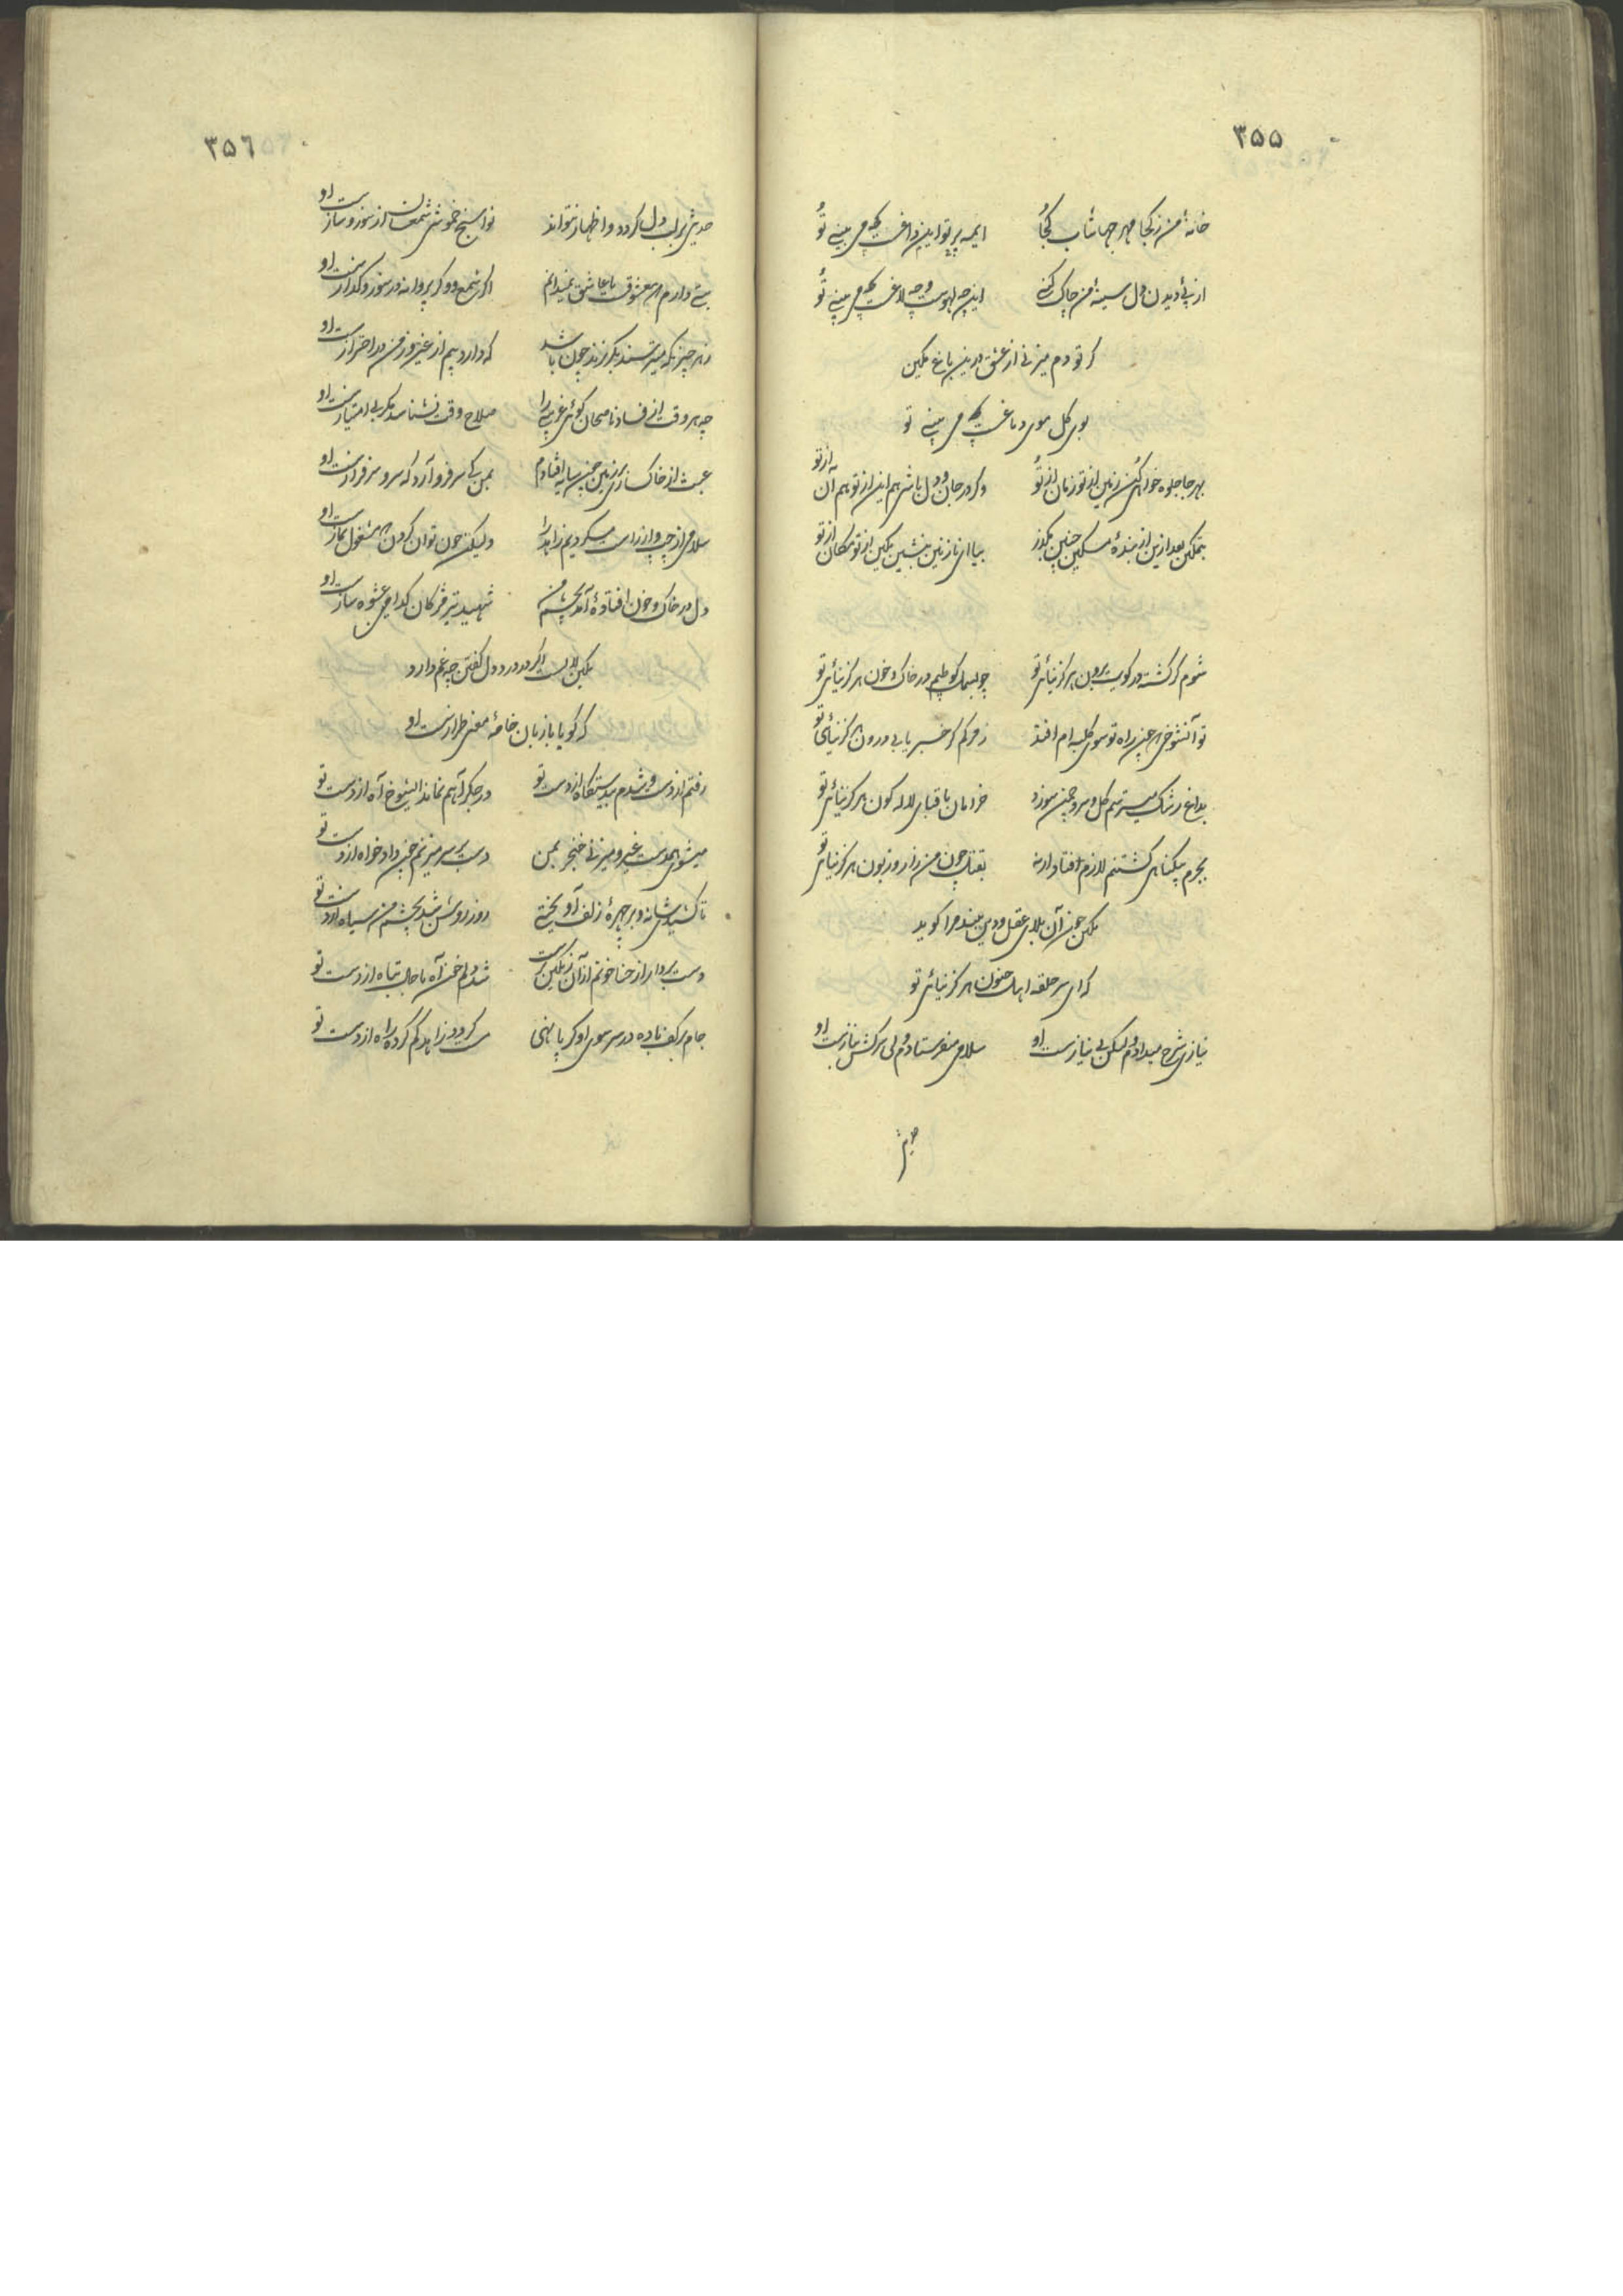 ۳۵۵
خانهٔ من ز کجا مهر جهانتاب کجا اینهمه پرتو این داغ که می بینی تو
از پی دیدن دل سینهٔ من چاک کنی این چه لهوست و چه لاغست که می بینی تو
گر تو دم میزنی از عشق درین باغ مکین
بوی گل موی دماغست که می بینی تو
بهر جا جلوه خواهی کن زمین از تو زمان از تو وگر در جان و دل باشی هم این از تو هم آن از تو
بتمکین بعد ازین از بندهٔ مسکین چنین مگذر بیا ای نازنین بنشین مکین از تو مکان از تو
شوم گر کشته در کویت برون هرگز نیائی تو چو بسمل گر طپم در خاک و خون هرگز نیائی تو
تو آنشوخی که چین راه تو سوی کلبه ام افتد ز مرگم گر خبر یابی درون هرگز نیائی تو
بداغ رشک میترسم گل و سرو چمن سوزد خرامان با قبای لاله گون هرگز نیائی تو
بجرم بیگناهی کشتنم لازم افتاد ارنه بقتل چون من زار و زبون هرگز نیائی تو
مکین چون آن بلای عقل و دین بیند مرا گوید
که ای سر حلقه اهل جنون هرگز نیائی تو
نیازی شرح میدادم لیکن بی نیازست او سلامی میفرستادم ولی سرکش بنازست او
حدیثی
۳۵٦
حدیثی بر لب دل گردد و اظهار نتواند نوا سنج خموشی شمعسان از سوز و سازست او
بتی دارم که معشوقست یا عاشق نمیدانم اگر شمع و گر پروانه در سوز و گدازست او
ز هر چیزیکه میترسند بگریزند چون باشد که دارد بیم از غیر و ز من در احترازست او
چه هر وقت از فساد ناصحان گوئی غریبی را صلاح وقت نشناسد مگر بی امتیازست او
عبث از خاکساری بر زمین چون سایه افتادم بمن کی سر فرو آرد که سرو سرفرازست او
سلامی از چپ و از راست میکردیم زاهد را ولیکن چون توان کردن که مشغول نمازست او
دل در خاک و خون افتادهٔ آمد بچشم من شهید تیر مژگان کدامی عشوه سازست او
مکین لالست اگر در درد دل گفتن چه غم دارد
که گویا با زبان خامهٔ معنی طرازست او
رفتم از دست و شدم بیدستگاه از دست تو در جگر آهم نماند ایشوخ آه از دست تو
میشوی همدست غیر و میزنی خنجر بمن دست بر سر میزنم چون دادخواه از دست تو
تا کشیدی شانه و بر چهرهٔ زلف آویختی روز روشن شد بچشم من سیاه از دست تو
دست بردار از حنا خونم از آن رنگین ترست شد دلم خون آه با حال تباه از دست تو
جام بر کف باده در سر سوی او گر پا نهی می کرد زاهد گم کرده راه از دست تو